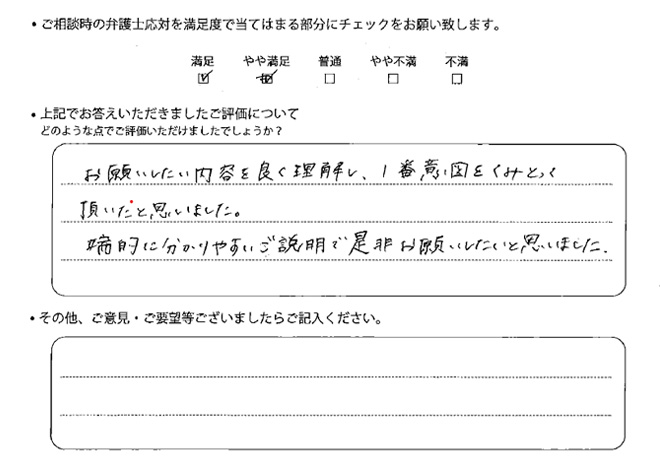 ・ご相談時の弁護士応対を満足度で当てはまる部分にチェックをお願い致します。
満足 やや満足 普通 やや不満 不満
・上記でお答えいただきましたご評価について
どのような点でご評価いただけましたでしょうか？
お願いしたい内容を良く理解し、1番意図をくみとって
頂いたと思いました。
端的に分かりやすいご説明で是非お願いしたいと思いました。
・その他、ご意見・ご要望等ございましたらご記入ください。